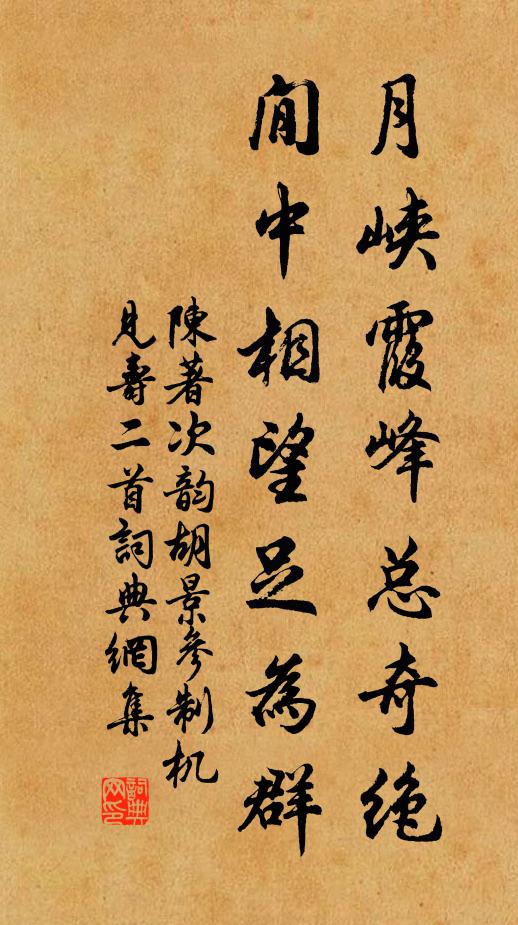 月峡霞峰总奇绝
閒中相望足為群
陳著次韵胡景參制机
見壽二首詞典網集
詞典網印